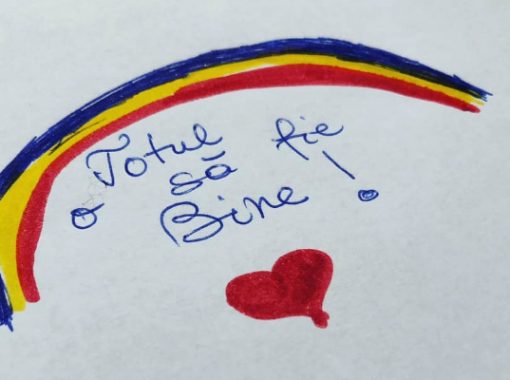 Totul
o să fie
Bine!